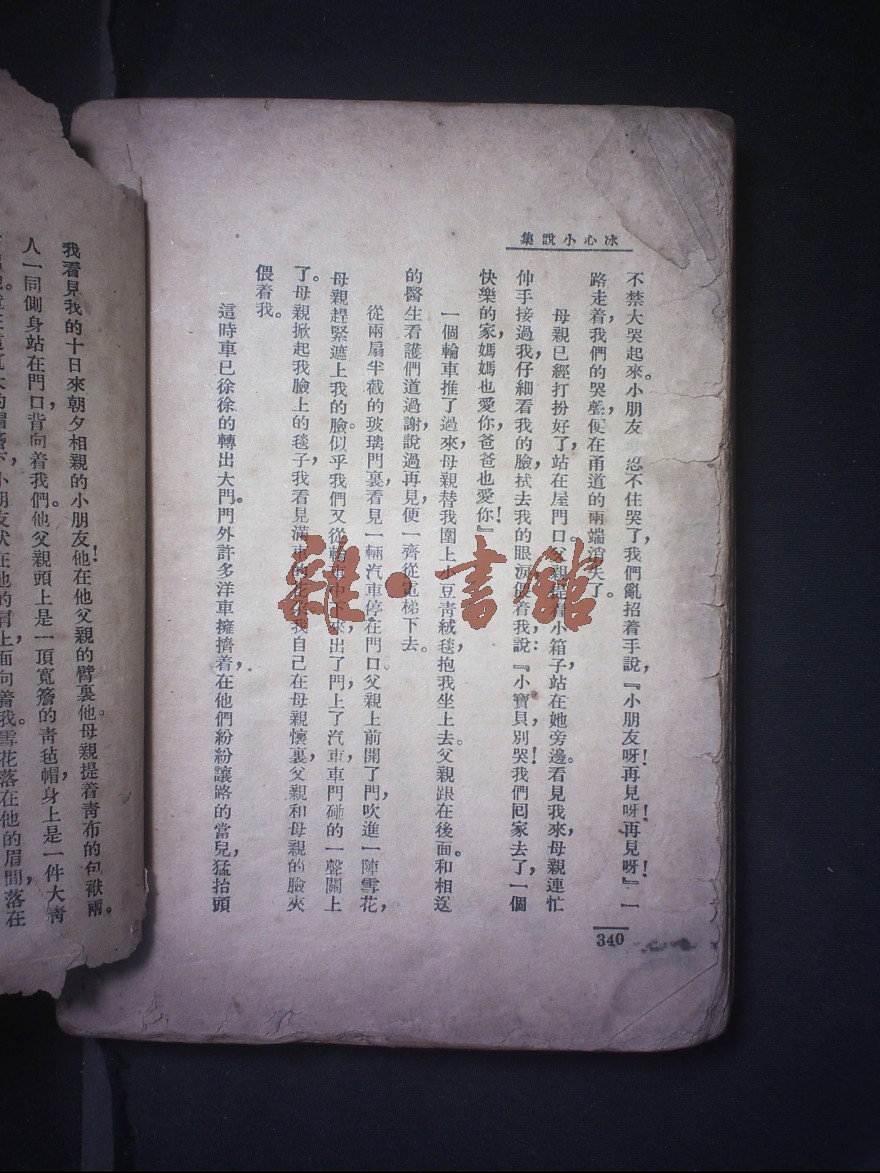 冰心小說集
不禁大哭起來。小朋友 忍不住哭了,我們亂招着手說,『小朋友呀!再見呀!再見呀!』一
路走着,我們的哭聲,便在甬道的兩端消失了。
母親已經打扮好了,站在屋門口。父親提着小箱子,站在她旁邊。看見我來,母親連忙
伸手接過我,仔細看我的臉,拭去我的眼淚,偎着我,說:『小寶貝,別哭!我們回家去了,一個
快樂的家,媽媽也愛你,爸爸也愛你!』
一個輪車推了過來,母親替我圍上 豆青絨毯,抱我坐上去。父親跟在後面。和相送
的醫生看護們道過謝,說過再見,便一齊從電梯下去。
從兩扇半截的玻璃門裏,看見一輛汽車停在門口。父親上前開了門,吹進一陣雪花,
母親趕緊遮上我的臉。似乎我們又從輪車中下來,出了門,上了汽車,車門碰的一聲關上
了。母親掀起我臉上的毯子,我看見滿車的花朵。我自己在母親懷裏,父親和母親的臉夾
偎着我。
這時車已徐徐的轉出大門。門外許多洋車擁擠着,在他們紛紛讓路的當兒,猛抬頭
340
我看見我的十日來朝夕相親的小朋友!他在他父親的臂裏。他母親提着青布的包袱。兩
人一同側身站在門口,背向着我們。他父親頭上是一頂寬簷的青毡帽,身上是一件大青
小朋友伏在他的肩上,面向着我。雪花落在他的眉間,落在